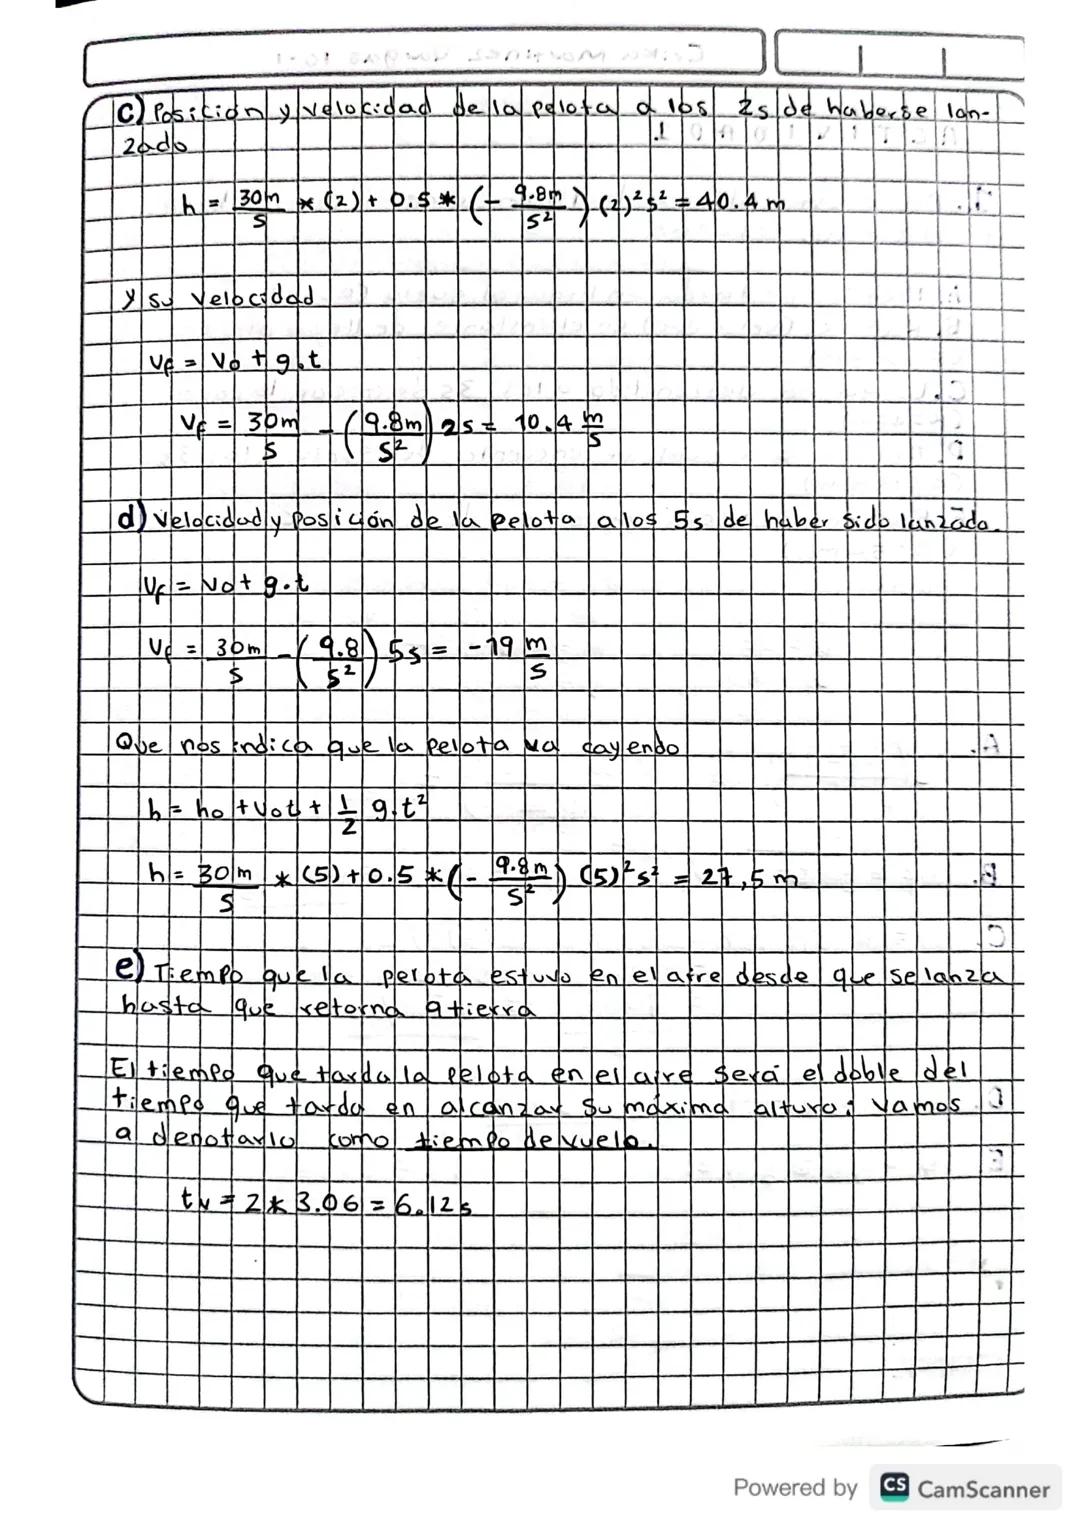 c) Posición y velocidad de la pelota a los 2s de haberse lan-
zado
h = 30m/s * (2) + 0.5 * (- 9.8m/s²) (2)² s² = 40.4 m
y su velocidad
Vf = Vo + g.t
Vf = 30m/s - (9.8m/s²) 2s = 10.4 m/s
d) Velocidad y posición de la pelota a los 5s de haber sido lanzada.
Vf = Vo + g.t
Vf = 30m/s - (9.8/s²) 5s = -19 m/s
Que nos indica que la pelota va cayendo
h = ho + Vot + 1/2 g.t²
h = 30m/s * (5) + 0.5 * (- 9.8m/s²) (5)² s² = 27,5 m
e) Tiempo que la pelota estuvo en el aire desde que se lanza
hasta que retorna a tierra
El tiempo que tarda la pelota en el aire será el doble del
tiempo que tarda en alcanzar su máxima altura; vamos
a denotarlo como tiempo de vuelo.
tv = 2 * 3.06 = 6.12s
Powered by CS CamScanner